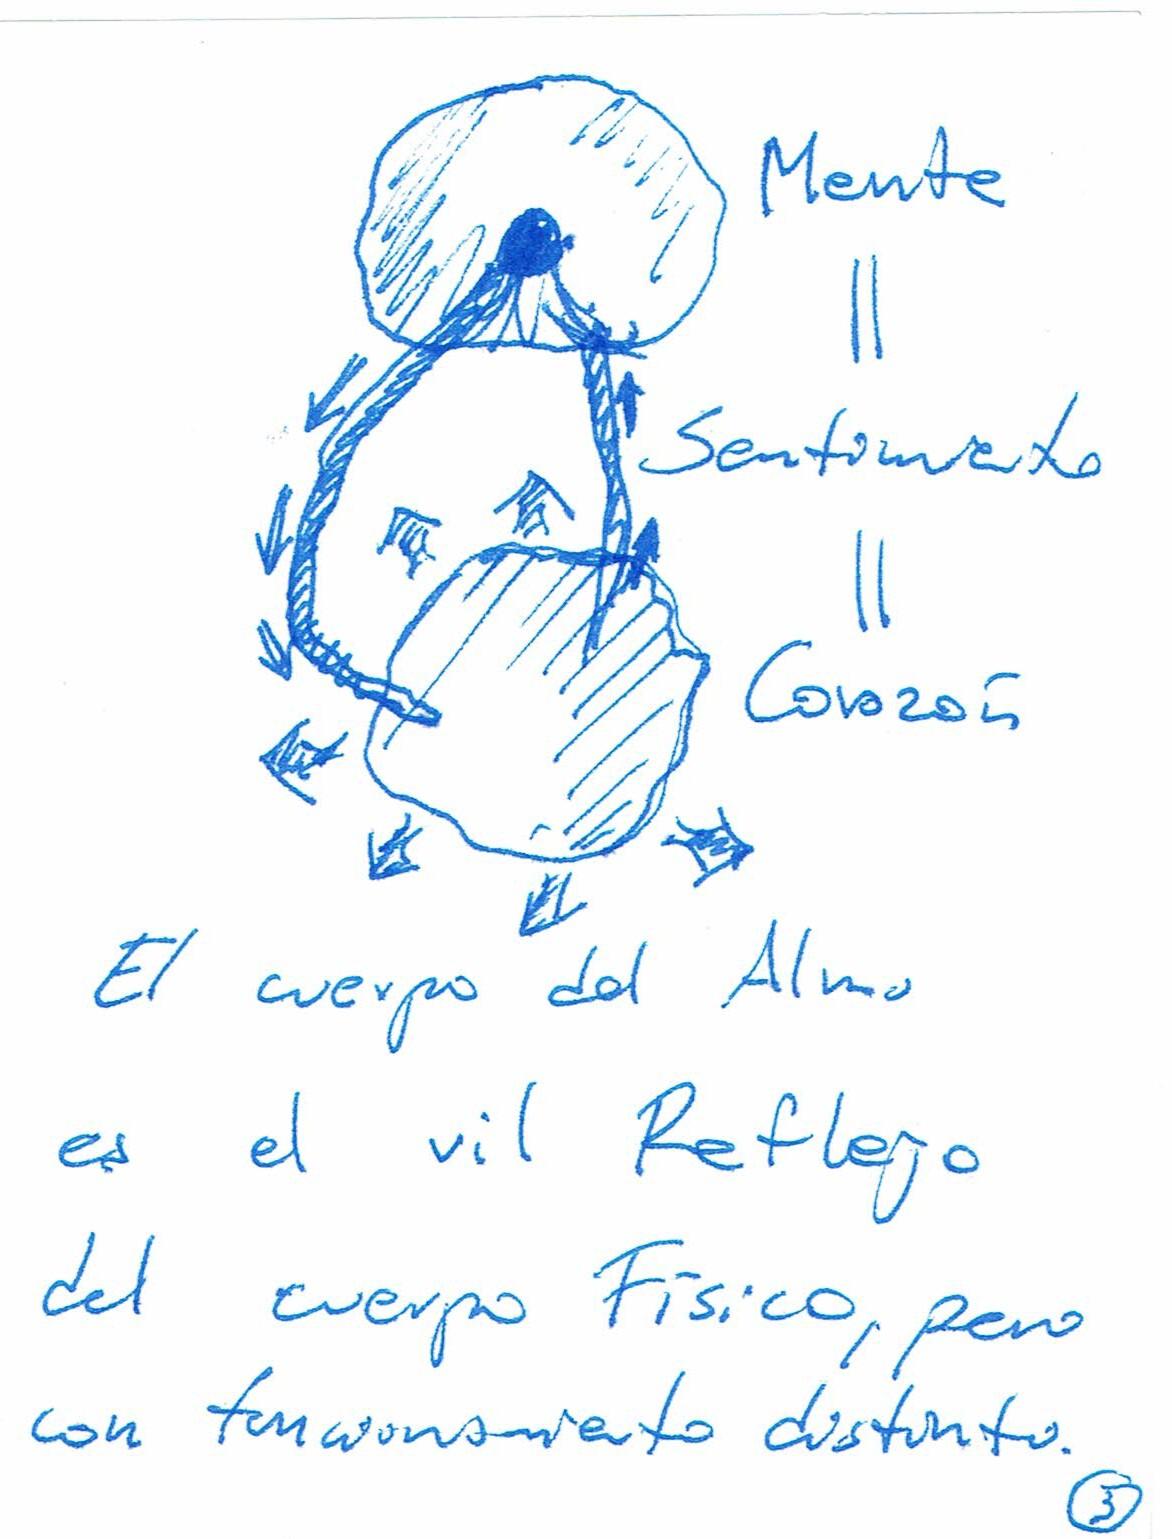 Mente
||
Sentimiento
||
Corazón
El cuerpo del Alma
es el vil Reflejo
del cuerpo Físico, pero
con funcionamiento distinto.
3